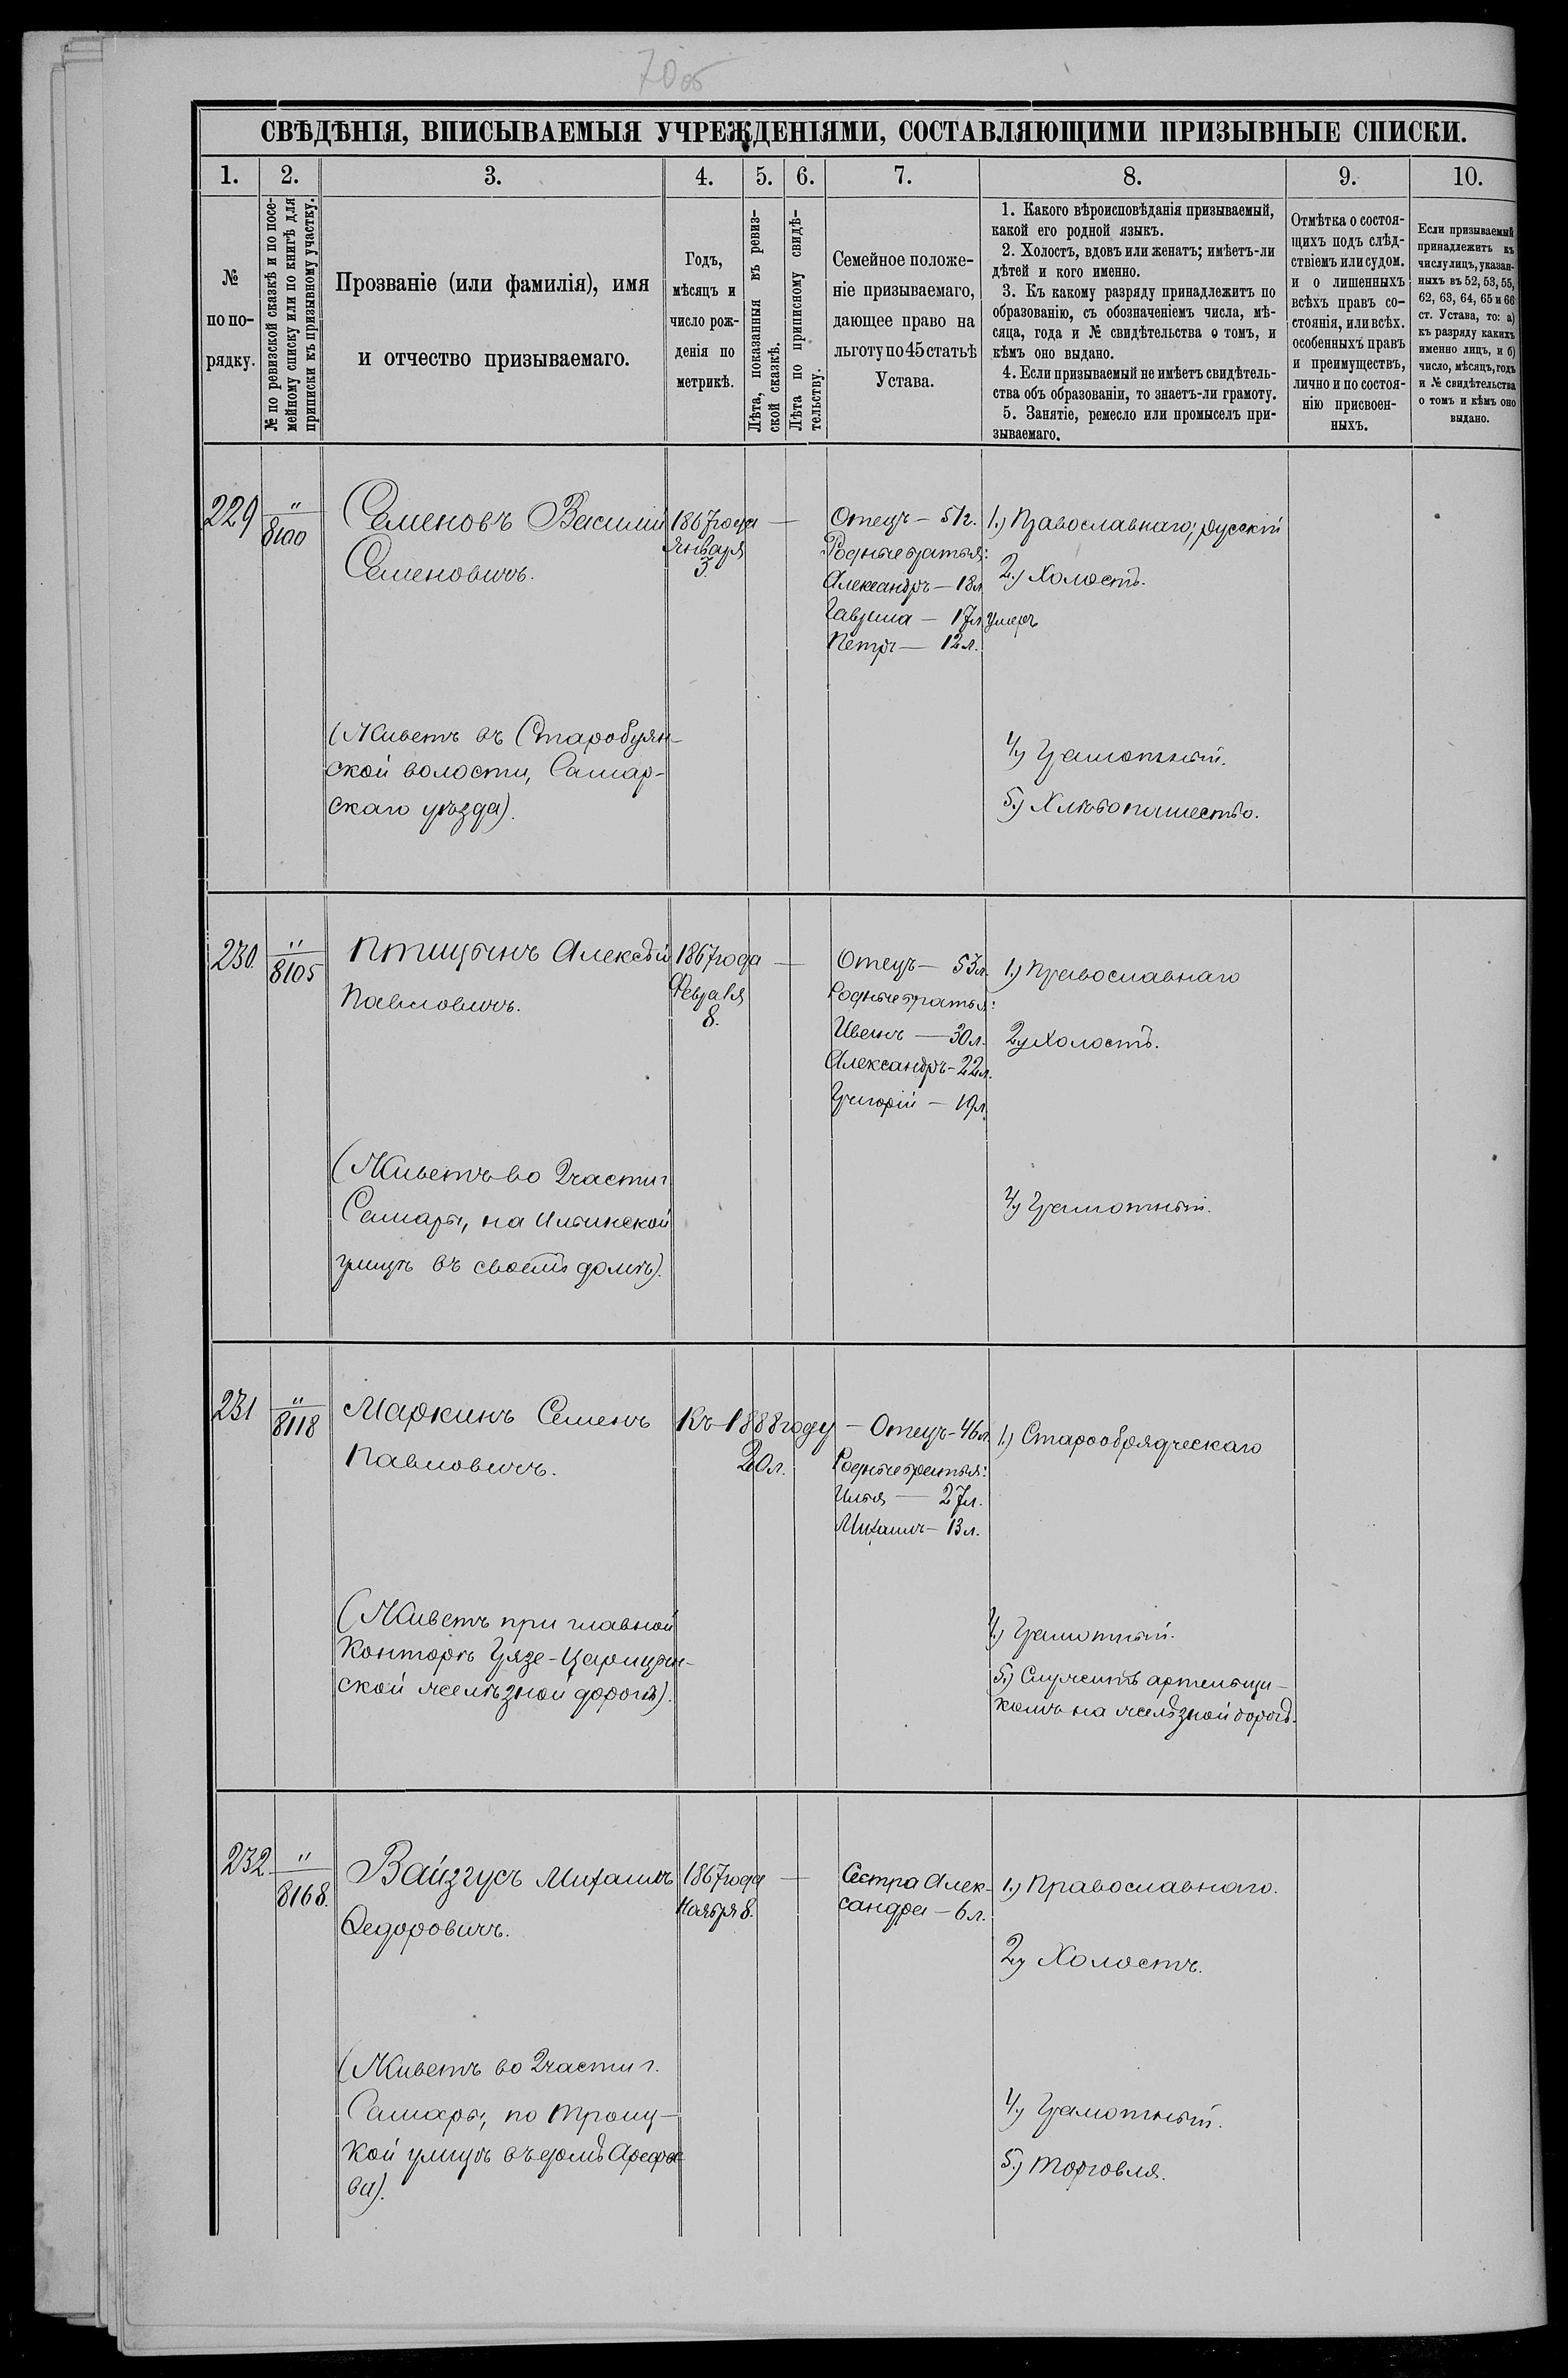 70об
СВѢДѢНІЯ, ВПИСЫВАЕМЫЯ УЧРЕЖДЕНІЯМИ, СОСТАВЛЯЮЩИМИ ПРИЗЫВНЫЕ СПИСКИ.
1. 2. 3. 4. 5. 6. 7. 8. 9. 10.
№
по по-
рядку.
№ по ревизской сказкѣ и по посе-
мейному списку или по книгѣ для
приписки къ призывному участку.
Прозваніе (или фамилія), имя
и отчество призываемаго.
Годъ,
мѣсяцъ и
число рож-
денія по
метрикѣ.
Лѣта, показанныя въ ревиз-
ской сказкѣ.
Лѣта по приписному свидѣ-
тельству.
Семейное положе-
ніе призываемаго,
дающее право на
льготу по 45 статьѣ
Устава.
1. Какого вѣроисповѣданія призываемый,
какой его родной языкъ.
2. Холостъ, вдовъ или женатъ; имѣетъ-ли
дѣтей и кого именно.
3. Къ какому разряду принадлежитъ по
образованію, съ обозначеніемъ числа, мѣ-
сяца, года и № свидѣтельства о томъ, и
кѣмъ оно выдано.
4. Если призываемый не имѣетъ свидѣтель-
ства объ образованіи, то знаетъ-ли грамоту.
5. Занятіе, ремесло или промыселъ при-
зываемаго.
Отмѣтка о состоя-
щихъ подъ слѣд-
ствіемъ или судом.
и о лишенныхъ
всѣхъ правъ со-
стоянія, или всѣх.
особенныхъ правъ
и преимуществъ,
лично и по состоя-
нію присвоен-
ныхъ.
Если призываемый
принадлежитъ къ
числу лицъ, указан-
ныхъ въ 52, 53, 55,
62, 63, 64, 65 и 66
ст. Устава, то: а)
къ разряду какихъ
именно лицъ, и б)
число, мѣсяцъ, годъ
и № свидѣтельства
о томъ и кѣмъ оно
выдано.
229
"
8100
Семеновъ Василий
Семеновичъ.
(Живетъ въ Старобуян-
ской волости, Самар-
скаго уѣзда).
1867 года
Января
3.
—
Отецъ — 51г.
Родные братья:
Александръ — 18л
Гаврила — 17л умеръ
Петръ — 12л.
1.) Православнаго; русскій
2.) Холостъ.
4.) Грамотный.
5.) Хлѣбопашество.
230.
"
8105
Птицынъ Алексѣй
Павловичъ.
(Живетъ во 2 части г.
Самары, на Ильинской
улицѣ въ своемъ домѣ).
1867 года
Февраля
8.
—
Отецъ — 53л.
Родные братья:
Иванъ — 30л.
Александръ — 22л.
Григорій — 19л.
1.) Православнаго
2.) Холостъ.
4.) Грамотный.
231
"
8118
Маркинъ Семенъ
Павловичъ.
(Живетъ при главной
Конторѣ Грязе-Царицын-
ской желѣзной дороги).
Къ 1888 году
20л.
— Отецъ — 46л
Родные братья:
Илья — 27л.
Михаилъ — 13л.
1.) Старообрядческаго
4.) Грамотный.
5.) Служитъ артельщи-
комъ на желѣзной дорогѣ.
232
"
8168.
Вайзгусъ Михаилъ
Федоровичъ.
(Живетъ во 2 части г.
Самары, по Троиц-
кой улицѣ въ домѣ Арефье
ва).
1867 года
Ноября 8.
—
Сестра Алек-
сандра — 6 л.
1.) Православнаго.
2.) Холостъ.
4.) Грамотный.
5.) Торговля.